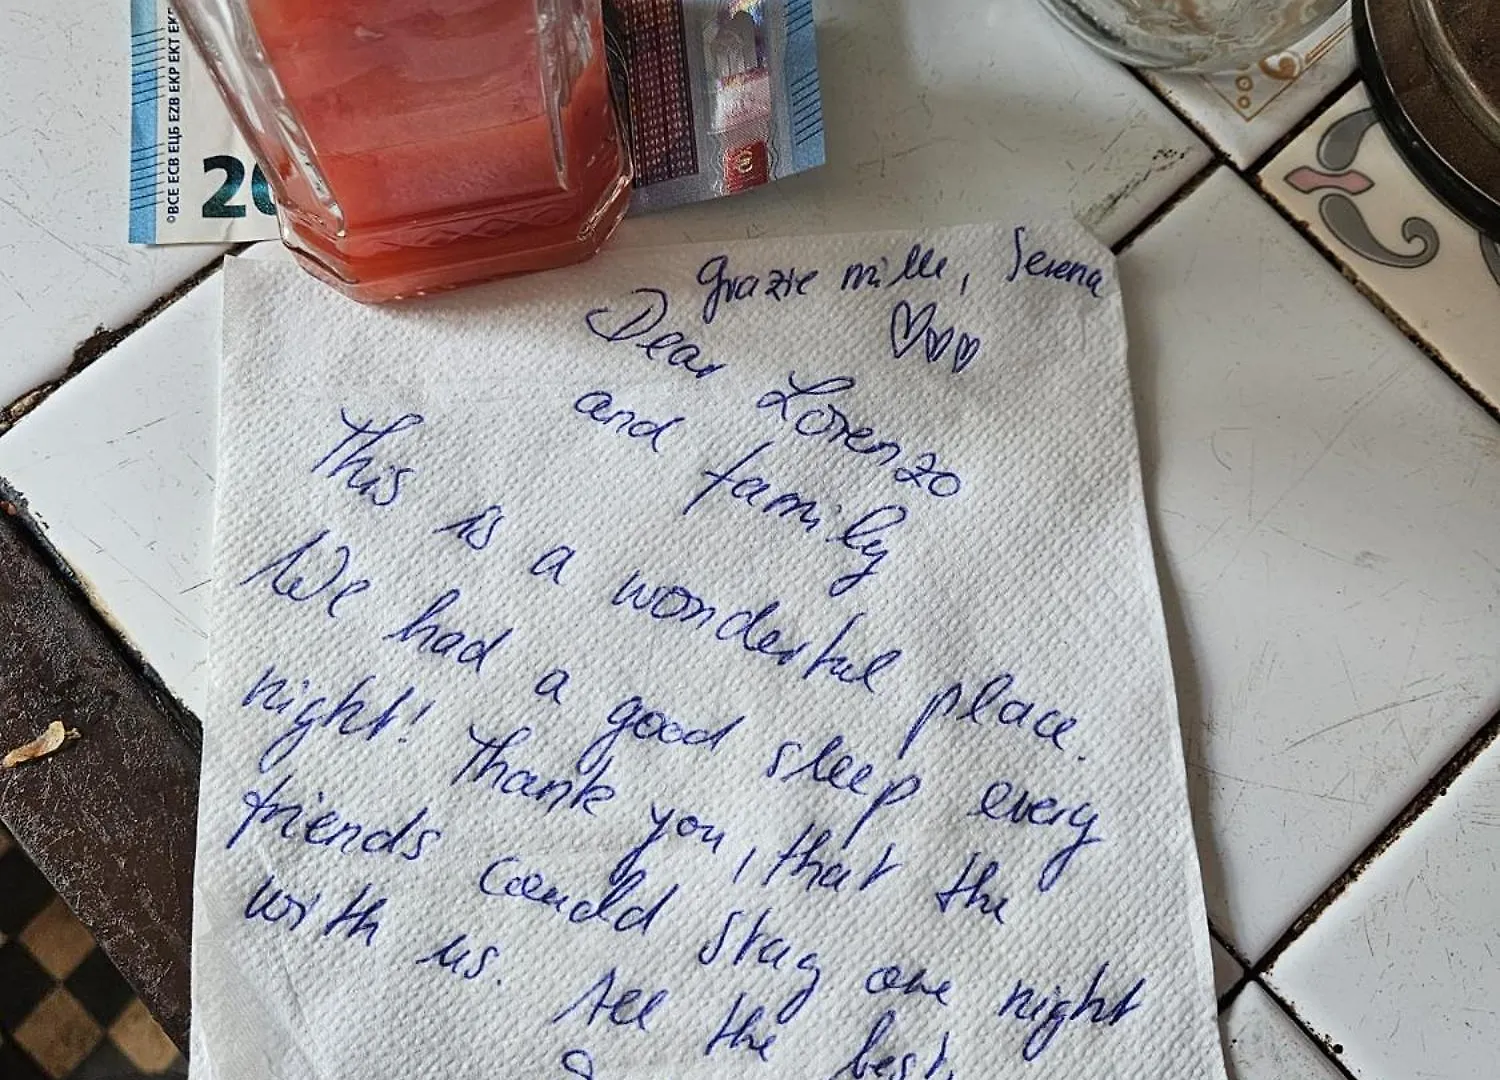 ©BCE ECB ЕЦБ EZB EKP EKT
20
grazie mille, Serena
Dear Lorenzo
and family
This is a wonderful place.
We had a good sleep every
night! Thank you, that the
friends could stay one night
with us. All the best,